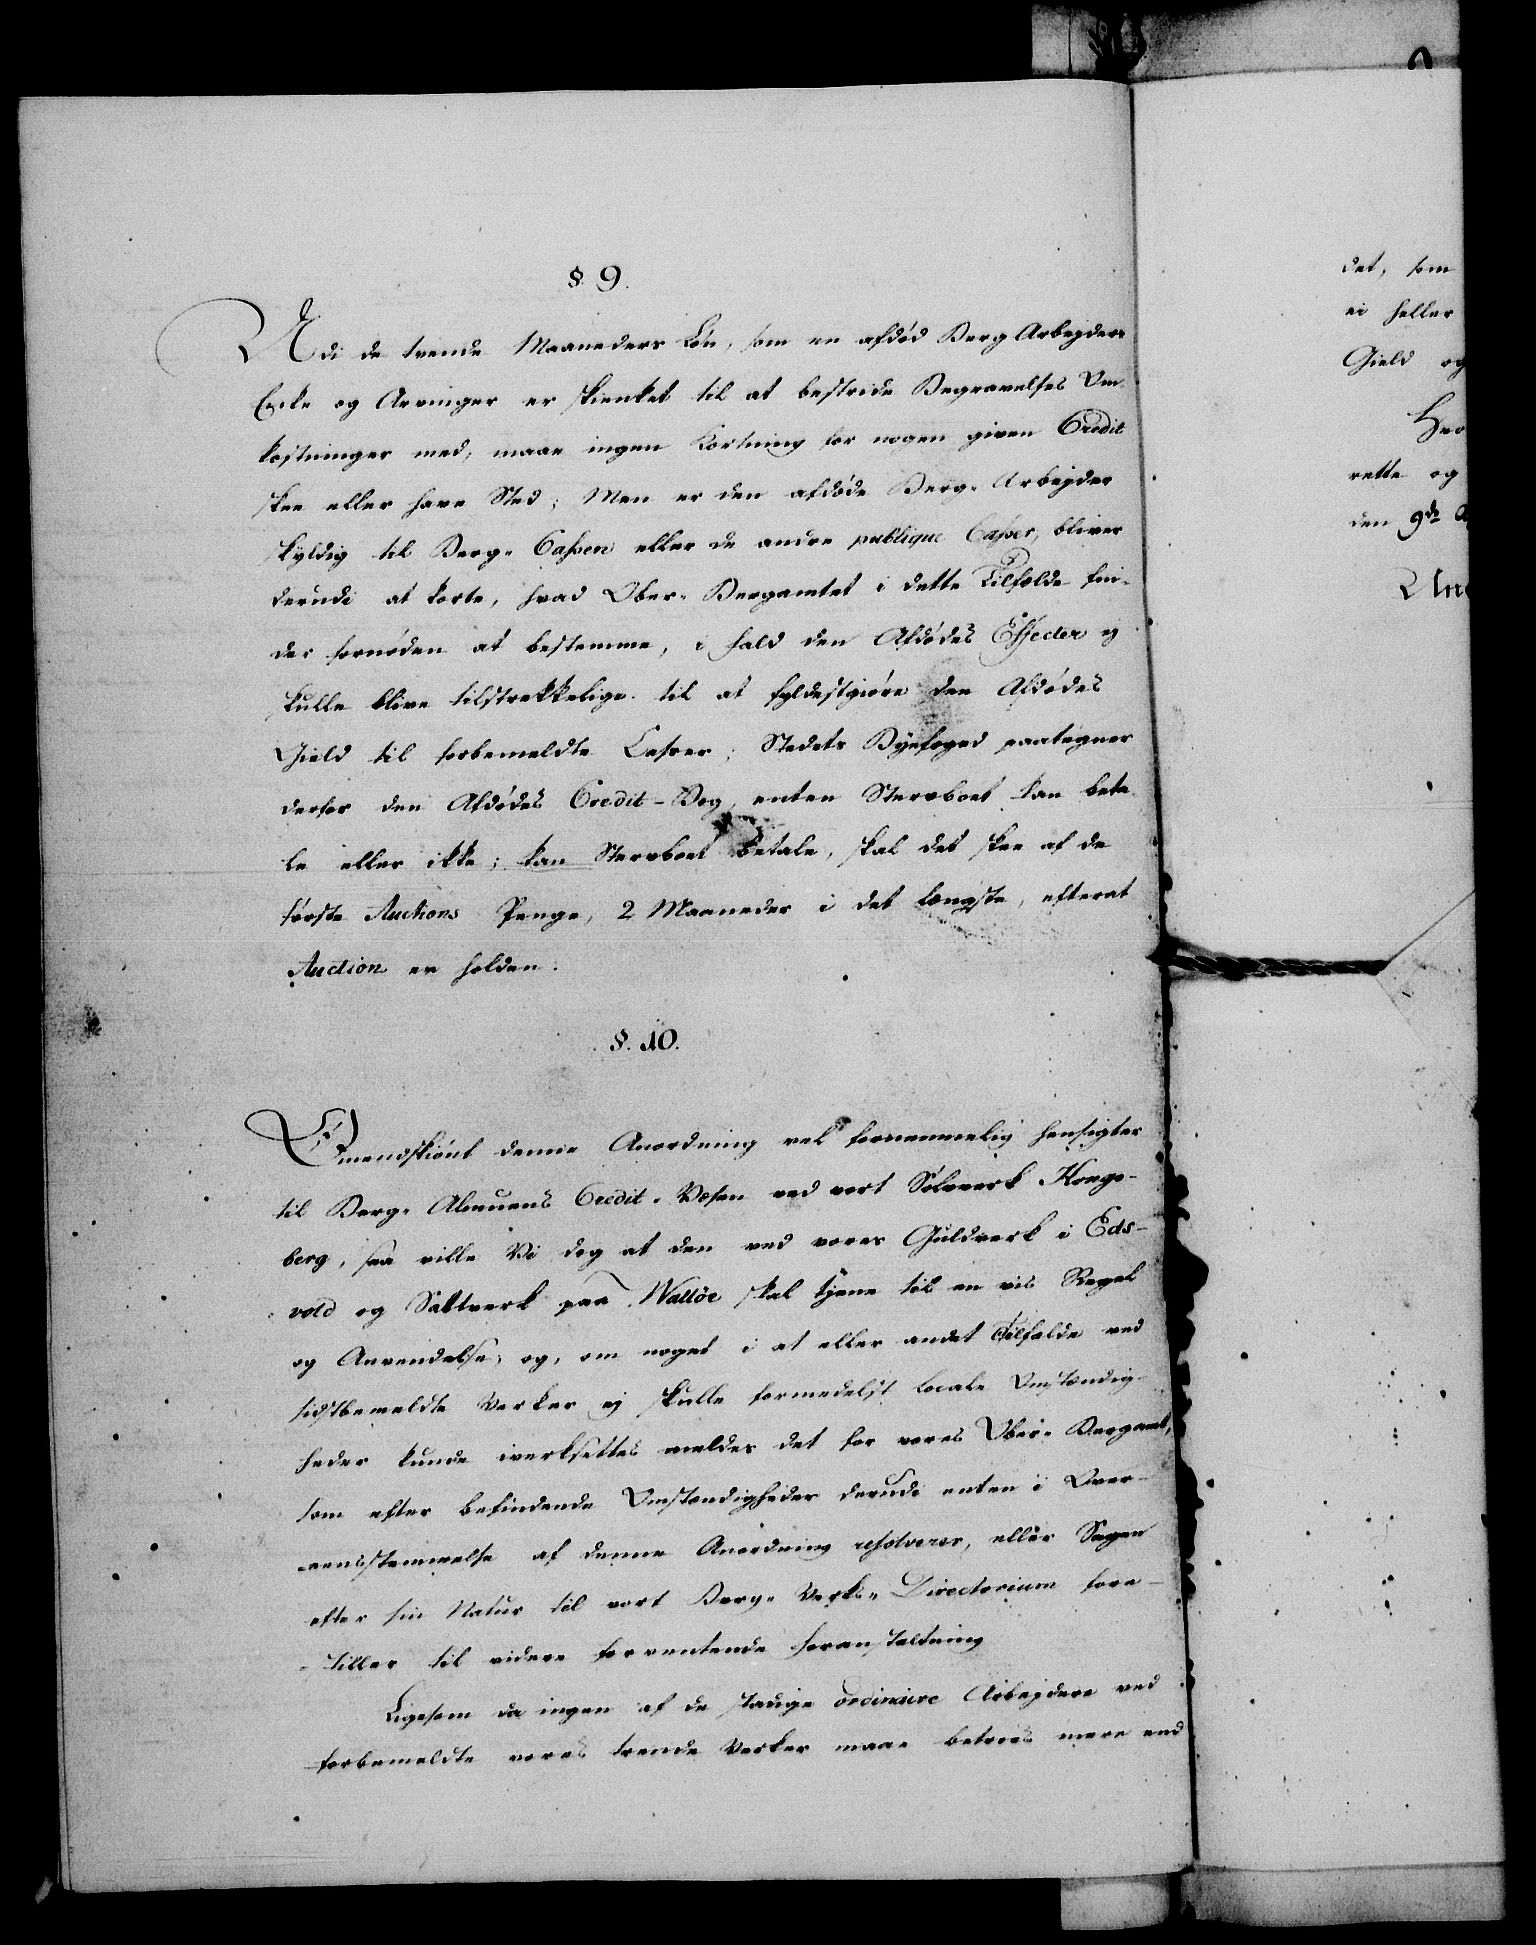 § 9.
Udi de trende Maaneders Løn, som en afdød Berg Arbejders
Enke og Arvinger er skienket til at bestride Begravelses Om-
kostninger med, maae ingen Kortning for nogen given Credit
skee eller have Sted; Men er den afdøde Berg-Arbejder
skyldig til Berg-Cassen eller de andre publique Casser, bliver
derudi at korte, hvad Ober-Bergamtet i dette Tilfælde fin-
der fornøden at bestemme, i fald den Afdødes Effecter ej
skulle blive tilstrekkelige til at fyldestgiøre den Afdødes
Gield til forbemeldte Casser; Stedets Byefoged paategner
derfor den Afdødes Credit-Bog, enten Stervboet kan beta
le eller ikke; kan Stervboet betale, skal det skee af de
første Auctions Penge, 2 Maaneder i det længste, efterat
Auction er holden.
§. 10.
Omendskiønt denne Anordning vel fornemmelig hensigter
til Berg-Almuens Credit-Væsen ved vort Sølvverk Kongs-
berg, saa ville Vi dog at den ved vores Guldverk i Eds-
vold og Saltverk paa Walløe skal tjene til en vis Regel
og Anvendelse; og, om noget i et eller andet Tilfælde ved
sidstbemeldte Verker ej skulle formedelst locale Omstændig-
heder kunde iverksættes meldes det for vores Ober-Bergamt,
som efter befindende Omstændigheder derudi enten i Over-
eensstemmelse af denne Anordning resolverer, eller Sagen
efter sin Natur til vort Berg-Verks-Directorium fore-
stiller til videre forventende Foranstaltning
Ligesom da ingen af de stadige ordinaire Arbejdere ved
forbemeldte vores trende Verker maae betroes mere end
det, som
ei heller
Gield og
Hvo
rette og
den 9de A
Und